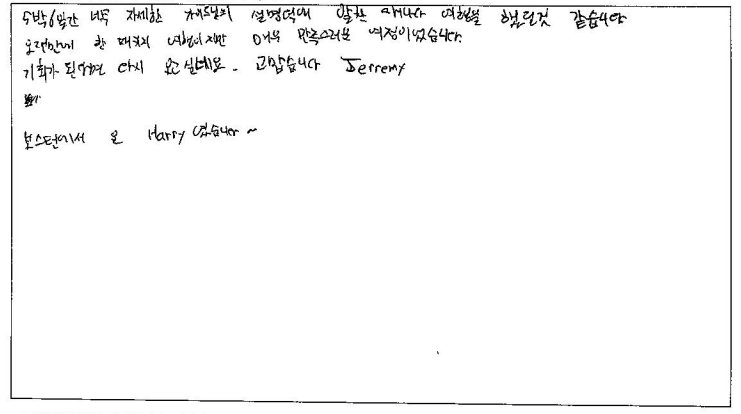 5박6일간 너무 자세한 가이드님의 설명덕에 알찬 캐나다 여행을 했던것 같습니다
오랜만에 한 패키지 여행이지만 매우 만족스러운 여정이었습니다.
기회가 된다면 다시 오고 싶네요. 고맙습니다 Jerremy
보스턴에서 온 Harry 였습니다~